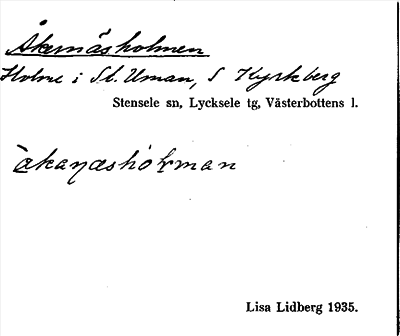 Åkernäsholmen
Holme i St. Uman, S Kyrkberg
Stensele sn, Lycksele tg, Västerbottens l.
Lisa Lidberg 1935.